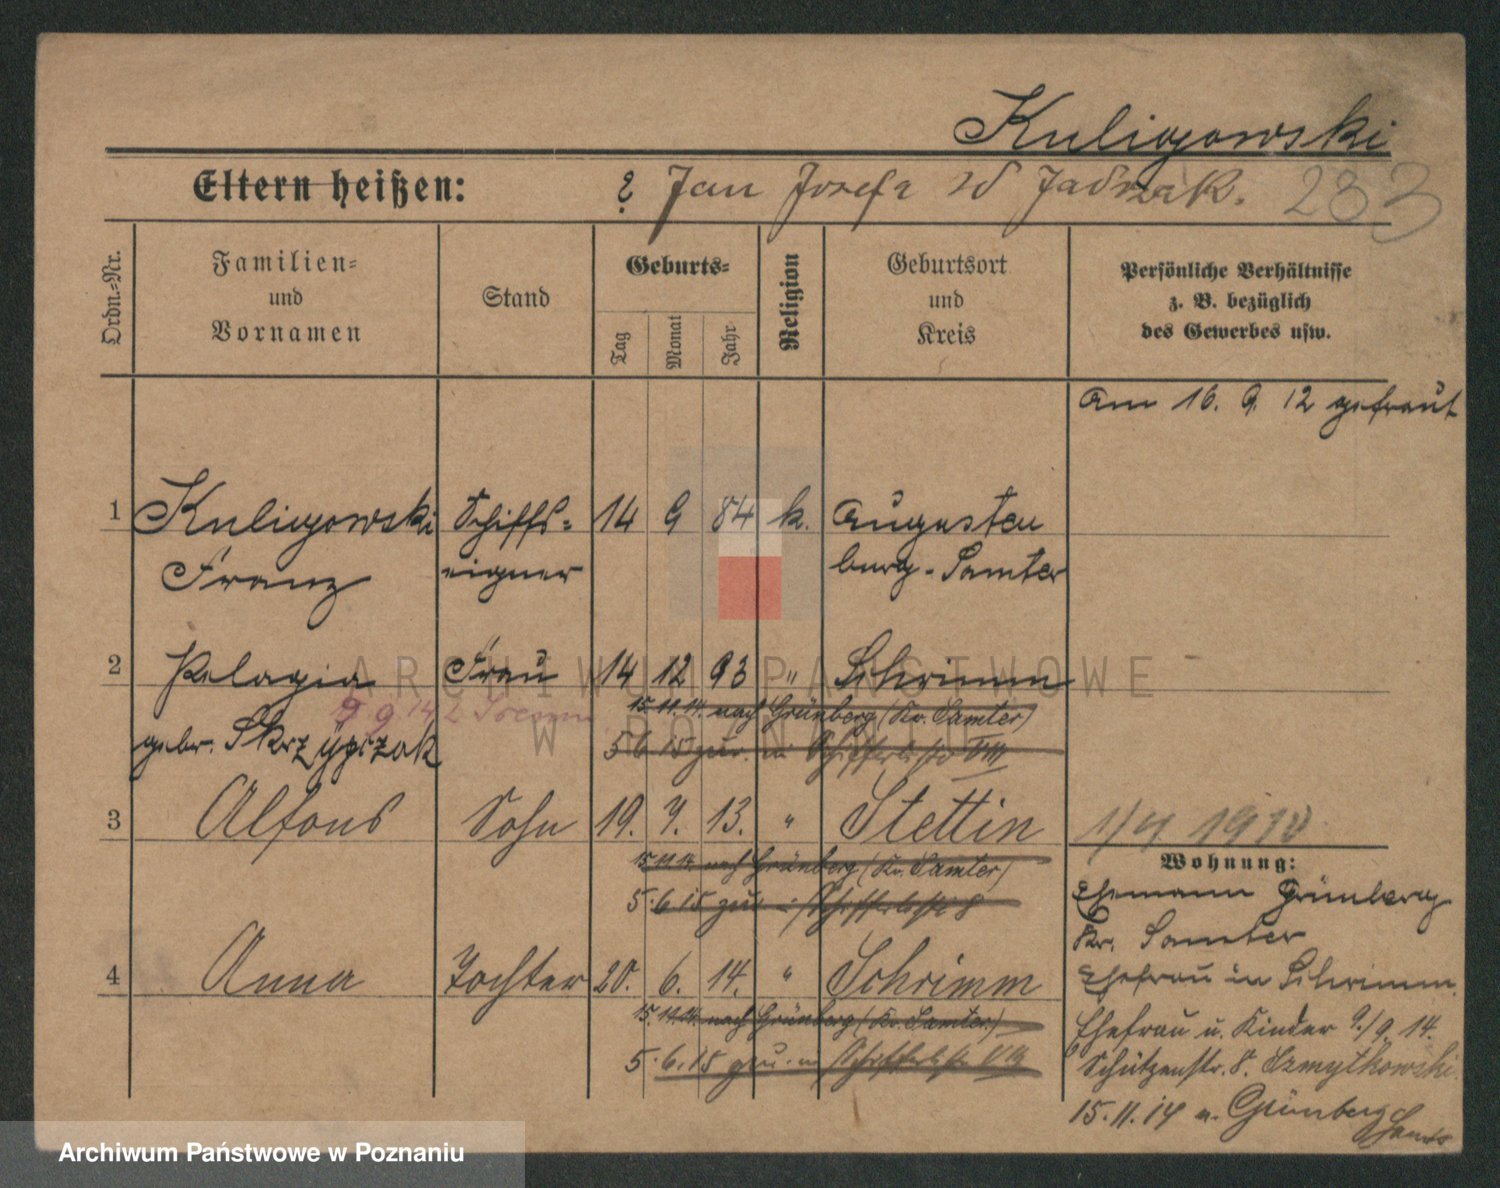 Kuligowski
Eltern heißen: ? Jan Josefa zd Jadrzak. 283
Ordn.-Nr.
Familien-
und
Vornamen
Stand
Geburts-
Tag
Monat
Jahr
Religion
Geburtsort
und
Kreis
Persönliche Verhältnisse
z. B. bezüglich
des Gewerbes usw.
Am 16. 9. 12 getraut
1 Kuligowski Schiffs- 14 9 84 k. Augusten
Franz eigner burg - Samter
2 Pelagia Frau 14 12 93 " Schrimm
9 9 14 Srem
15.11.14. nach Grünberg (Kr. Samter)
gebr. Skrzypszak 5 6 15 zur. in Schifferliste VIII
3 Alfons Sohn 19. 7. 13. " Stettin
1/4 1910
15.11.14. nach Grünberg (Kr. Samter)
5.6.15 zur. Schifferliste 8
Wohnung:
Ehemann Grünberg
Kr. Samter
4 Anna Tochter 20. 6. 14. " Schrimm
Ehefrau in Schrimm.
15.11.14. nach Grünberg (Kr. Samter.)
5.6.15 zur. in Schifferliste VIII
Ehefrau u. Kinder 9./9. 14.
Schützenstr. 8. Szmytkowski
15.11.14 n. Grünberg
Samter
ARCHIWUM PAŃSTWOWE
W POZNANIU
Archiwum Państwowe w Poznaniu